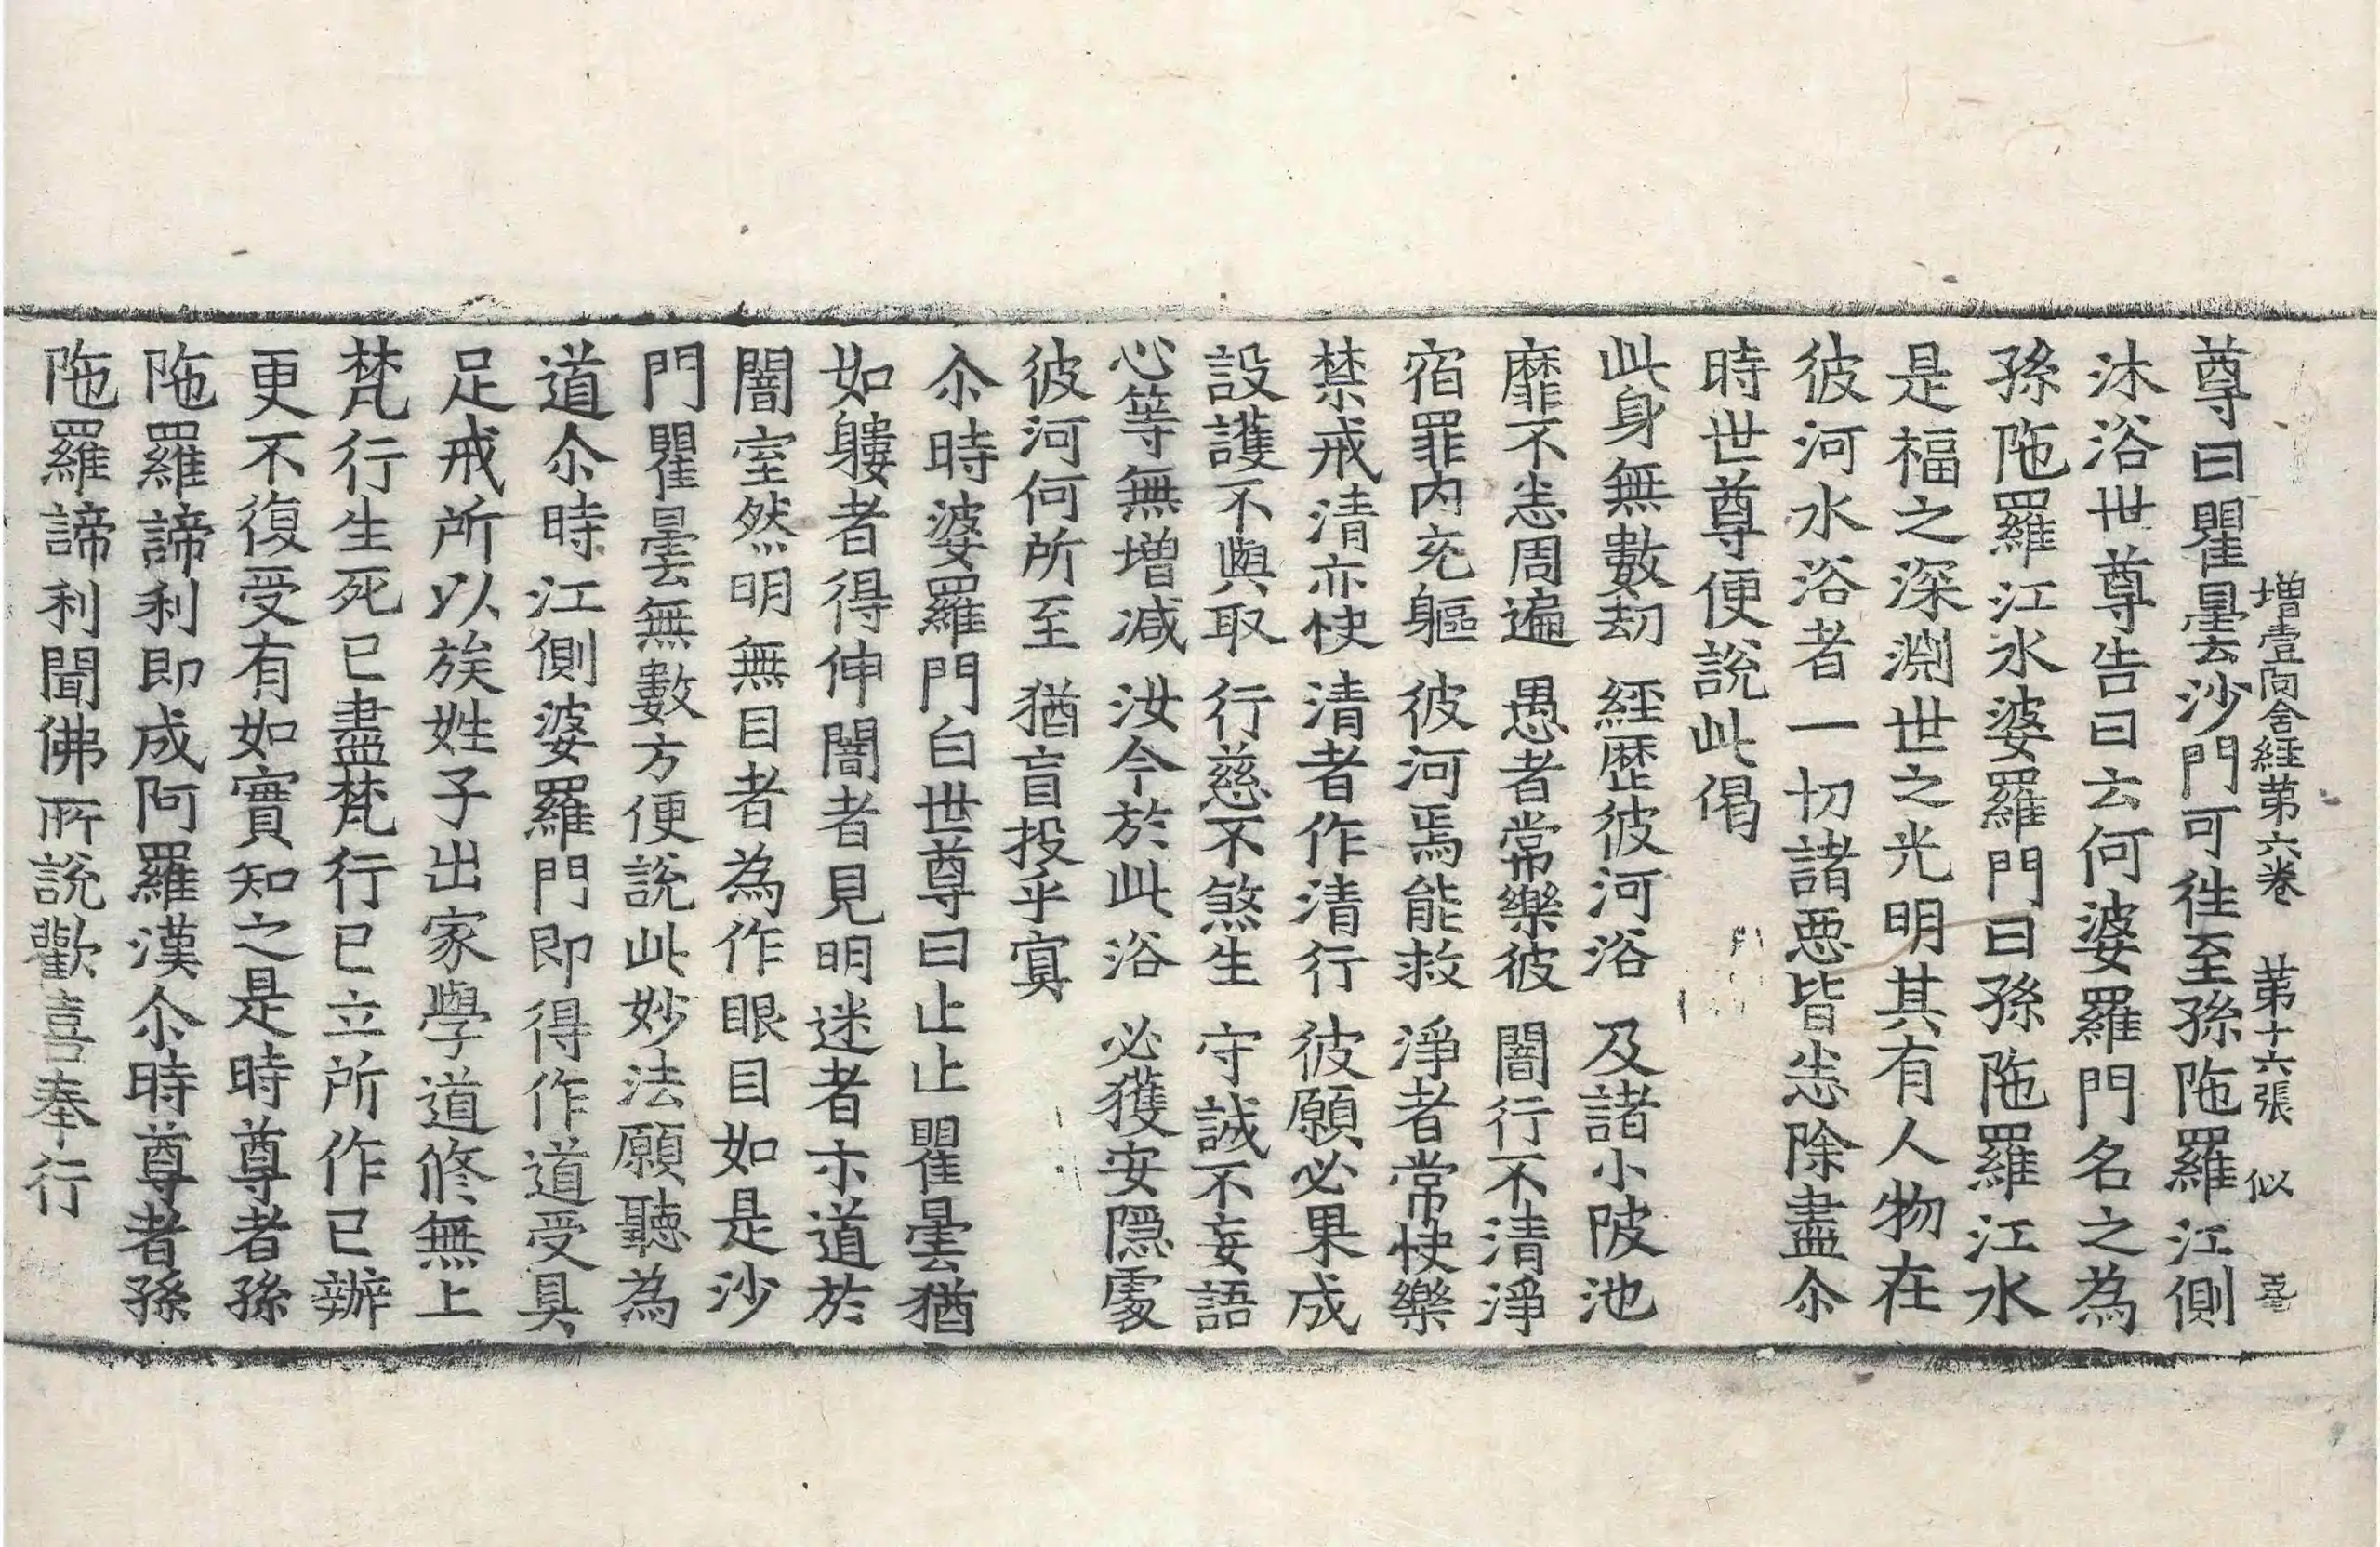 增壹阿含經第六卷 第十六張 似
尊曰瞿曇沙門可往至孫陁羅江側
沐浴世尊告曰云何婆羅門名之為
孫陁羅江水婆羅門曰孫陁羅江水
是福之深淵世之光明其有人物在
彼河水浴者一切諸惡皆悉除盡尒
時世尊便說此偈
此身無數劫 經歷彼河浴 及諸小陂池
靡不悉周遍 愚者常樂彼 闇行不清淨
宿罪內充軀 彼河焉能救 淨者常快樂
禁戒清亦快 清者作清行 彼願必果成
設護不與取 行慈不煞生 守誠不妄語
心等無增減 汝今於此浴 必獲安隱處
彼河何所至 猶盲投乎冥
尒時婆羅門白世尊曰止止瞿曇猶
如軁者得伸闇者見明迷者示道於
闇室然明無目者為作眼目如是沙
門瞿曇無數方便說此妙法願聽為
道尒時江側婆羅門即得作道受具
足戒所以族姓子出家學道修無上
梵行生死已盡梵行已立所作已辦
更不復受有如實知之是時尊者孫
陁羅諦利即成阿羅漢尒時尊者孫
陁羅諦利聞佛所說歡喜奉行